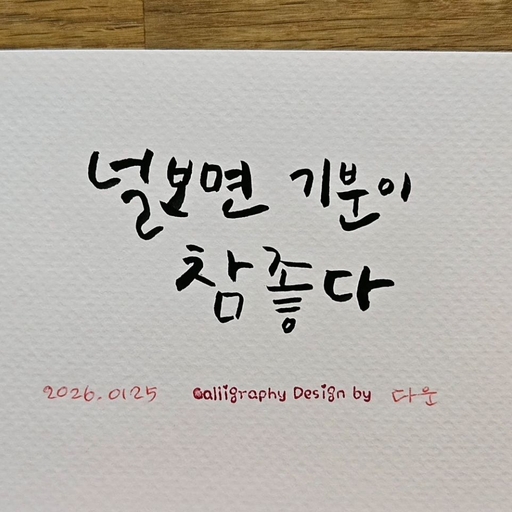 널보면 기분이
참좋다
2026.0125 Calligraphy Design by 다운